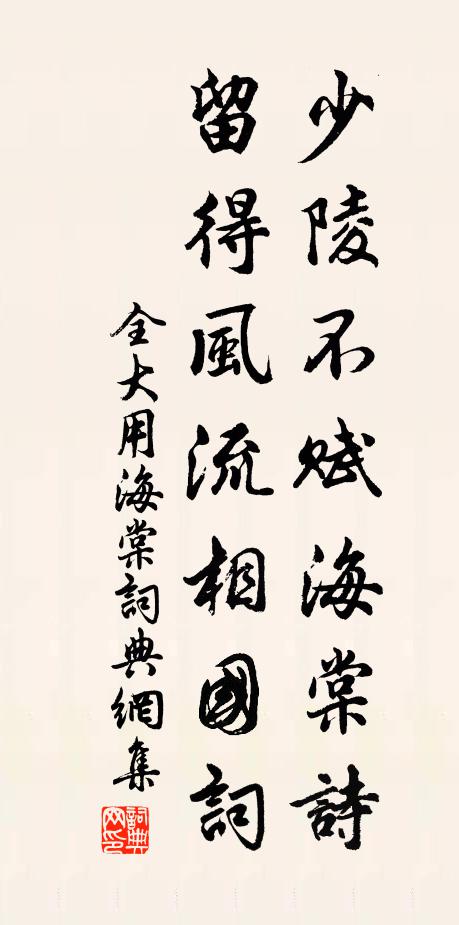 少陵不賦海棠詩
留得風流相國詞
全大用海棠詞典網集
詞典网印